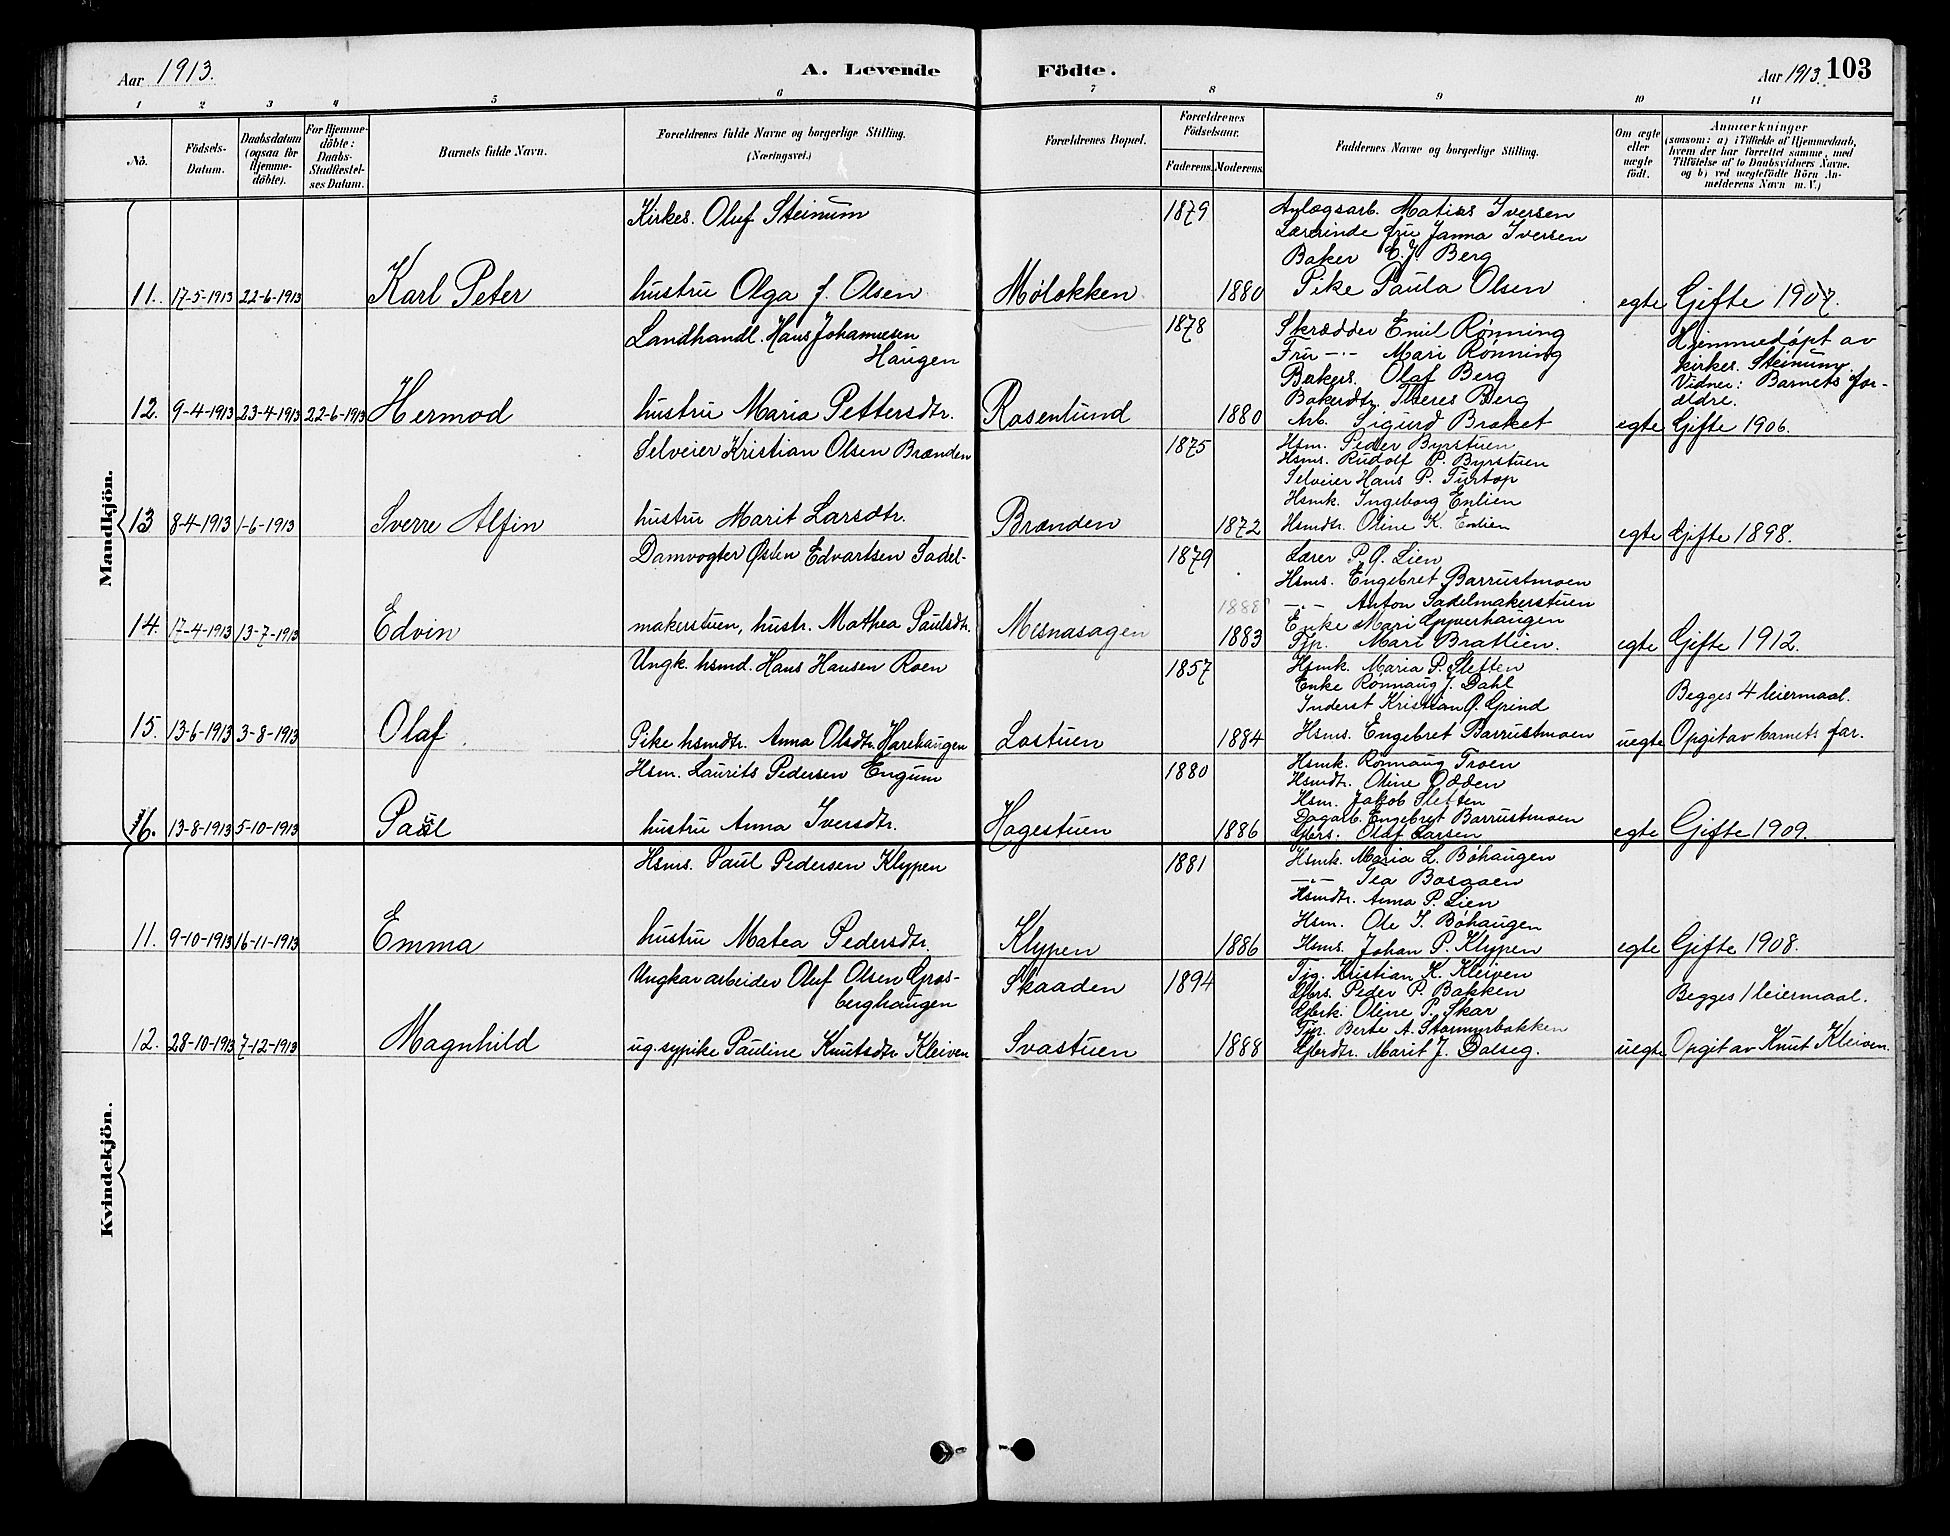 Aar 1913.
A. Levende Födte.
Aar 1913. 103
1 2 3 4 5 6 7 8 9 10 11
No.
Födsels-Datum.
Daabsdatum (ogsaa for Hjemme-döbte).
For Hjemme-döbte: Daabs-Stadfæstel-ses Datum.
Barnets fulde Navn.
Forældrenes fulde Navne og borgerlige Stilling.
(Næringsvei.)
Forældrenes Bopæl.
Forældrenes Födselsaar.
Faderens. Moderens.
Faddernes Navne og borgerlige Stilling.
Om ægte eller uægte født.
Anmærkninger
(saasom: a) i Tilfælde af Hjemmedaab,
hvem der har forrettet samme, med
Tilföielse af to Daabsvidners Navne.
og b) ved uægtefödte Börn An-
melderens Navn m. V.)
Mandkjön.
Kirkes. Oluf Steinum 1879 Anlægsarb. Matias Iversen
Lærerinde fru Janna Iversen
Baker E. J. Berg
11. 17-5-1913 22-6-1913 Karl Peter hustru Olga f. Olsen Mølokken 1880 Pike Paula Olsen egte Gifte 1907.
Landhandl. Hans Johannesen 1878 Skrædder Emil Rønning Hjemmedøpt av
Haugen Fru -"- Mari Rønning kirkes. Steinum.
Bakers. Olaf Berg Vidner: Barnets for-
Bakerdtr. Theres Berg ældre.
12. 9-4-1913 23-4-1913 22-6-1913 Hermod hustru Maria Pettersdtr. Rosenlund 1880 Arb. Sigurd Braket egte Gifte 1906.
Selveier Kristian Olsen Brænden 1875 Hsm. Peder Byrstuen
Hsms. Rudolf P. Byrstuen
Selveier Hans P. Turtop
Hsmk. Ingeborg Enlien
13 8-4-1913 1-6-1913 Sverre Alfin hustru Marit Larsdtr. Brænden 1872 Hsmdtr. Oline K. Enlien egte Gifte 1898.
Damvogter Østen Edvartsen Sadel- 1879 Lærer P. O. Lien
Hsms. Engebret Barrustmoen
1888 -"- Anton Sadelmakerstuen
Enke Mari Gpverhaugen
14. 17-4-1913 13-7-1913 Edvin makerstuen, hustr. Mathea Paulsdtr. Mesnasagen 1883 Tjp. Mari Brattlien. egte Gifte 1912.
Ungk. hsmd. Hans Hansen Roen 1857 Hsmk. Maria P. Sletten
Enke Rønnaug J. Dahl Begges 4 leiermaal.
Inderst Kristian O. Grind
15. 13-6-1913 3-8-1913 Olaf Pike hsmdtr. Anna Olsdtr. Harehaugen Lostuen 1884 Hsms. Engebret Barrustmoen uegte Opgit av barnets far.
Hsm. Laurits Pedersen Engum 1880 Hsmk. Rønnaug Troen
Hsmdtr. Oline Odden
Hsm. Jakob Sletten
Dagarb. Engebret Barrustmoen
16. 13-8-1913 5-10-1913 Paul hustru Anna Iversdtr. Hagestuen 1886 Gbrs. Olaf Larsen egte Gifte 1909.
Kvindekjön.
Hsms. Paul Pedersen Klypen 1881 Hsmk. Maria L. Bøhaugen
-"- Tea Bosgaen
Hsmdtr. Anna P. Lien
Hsm. Ole I. Bøhaugen
11. 9-10-1913 16-11-1913 Emma hustru Matea Pedersdtr. Klypen 1886 Hsms. Johan P. Klypen egte Gifte 1908.
Ungkar arbeider Oluf Olsen Gras- Skaaden 1894 Tjg. Kristian K. Kleiven
berghaugen Gbrs. Peder P. Bakken Begges 1 leiermaal.
Gbrk. Oline P. Skar
Tjp. Berte A. Stormmbakken
12. 28-10-1913 7-12-1913 Magnhild ug. sypike Pauline Knutsdtr Kleiven Svastuen 1888 Gbrdtr. Marit J. Dalseg. uegte Opgit av Knut Kleiven.